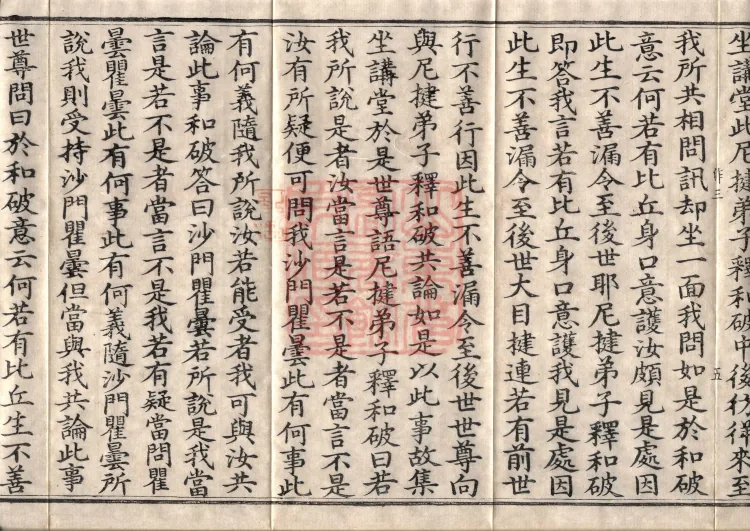 坐講堂此尼揵弟子釋和破中後彷徉來至
我所共相問訊却坐一面我問如是於和破
意云何若有比丘身口意護汝頗見是處因
此生不善漏令至後世耶尼揵弟子釋和破
即答我言若有比丘身口意護我見是處因
此生不善漏令至後世大目揵連若有前世
行不善行因此生不善漏令至後世世尊向
與尼揵弟子釋和破共論如是以此事故集
坐講堂於是世尊語尼揵弟子釋和破曰若
我所說是者汝當言是若不是者當言不是
汝有所疑便可問我沙門瞿曇此有何事此
有何義隨我所說汝若能受者我可與汝共
論此事和破答曰沙門瞿曇若所說是我當
言是若不是者當言不是我若有疑當問瞿
曇瞿曇此有何事此有何義隨沙門瞿曇所
說我則受持沙門瞿曇但當與我共論此事
世尊問曰於和破意云何若有比丘生不善
作三
五